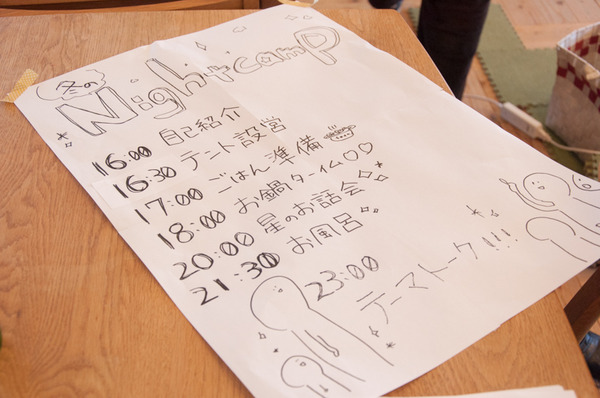 冬の
Night camp
16:00 自己紹介
16:30 テント設営
17:00 ごはん準備
18:00 お鍋タイム♡♡
20:00 星のお話会
21:30 お風呂
23:00 テーマトーク!!!